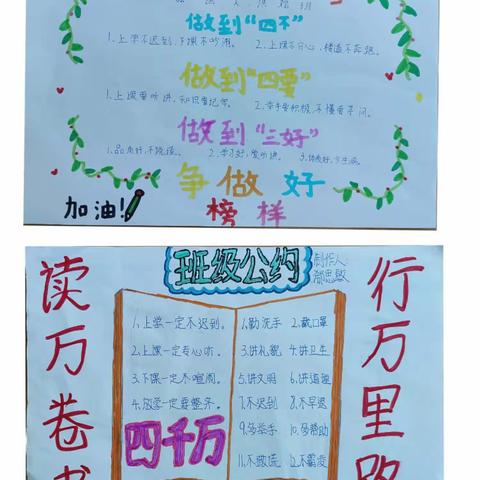 做到“四不”
1、上学不迟到,下课不吵闹。 2、上课不分心,楼道不奔跑。
做到“四要”
1、上课要听讲,知识要记牢。 2、举手要积极,不懂要多问。
做到“三好”
1、品质好,不说谎。 2、学习好,爱听讲。 3、体质好,少生病。
争做好
榜样
加油!
班级公约
制作人
读万卷书
行万里路
1、上学一定不迟到。
2、上课一定专心听。
3、下课一定不喧闹。
4、放学一定要整齐。
四千万
1、勤洗手 2、戴口罩
3、讲礼貌 4、讲卫生
5、讲文明 6、讲道理
7、不迟到 8、不早退
9、多举手 10、多帮助
11、不撒谎 12、不霸凌